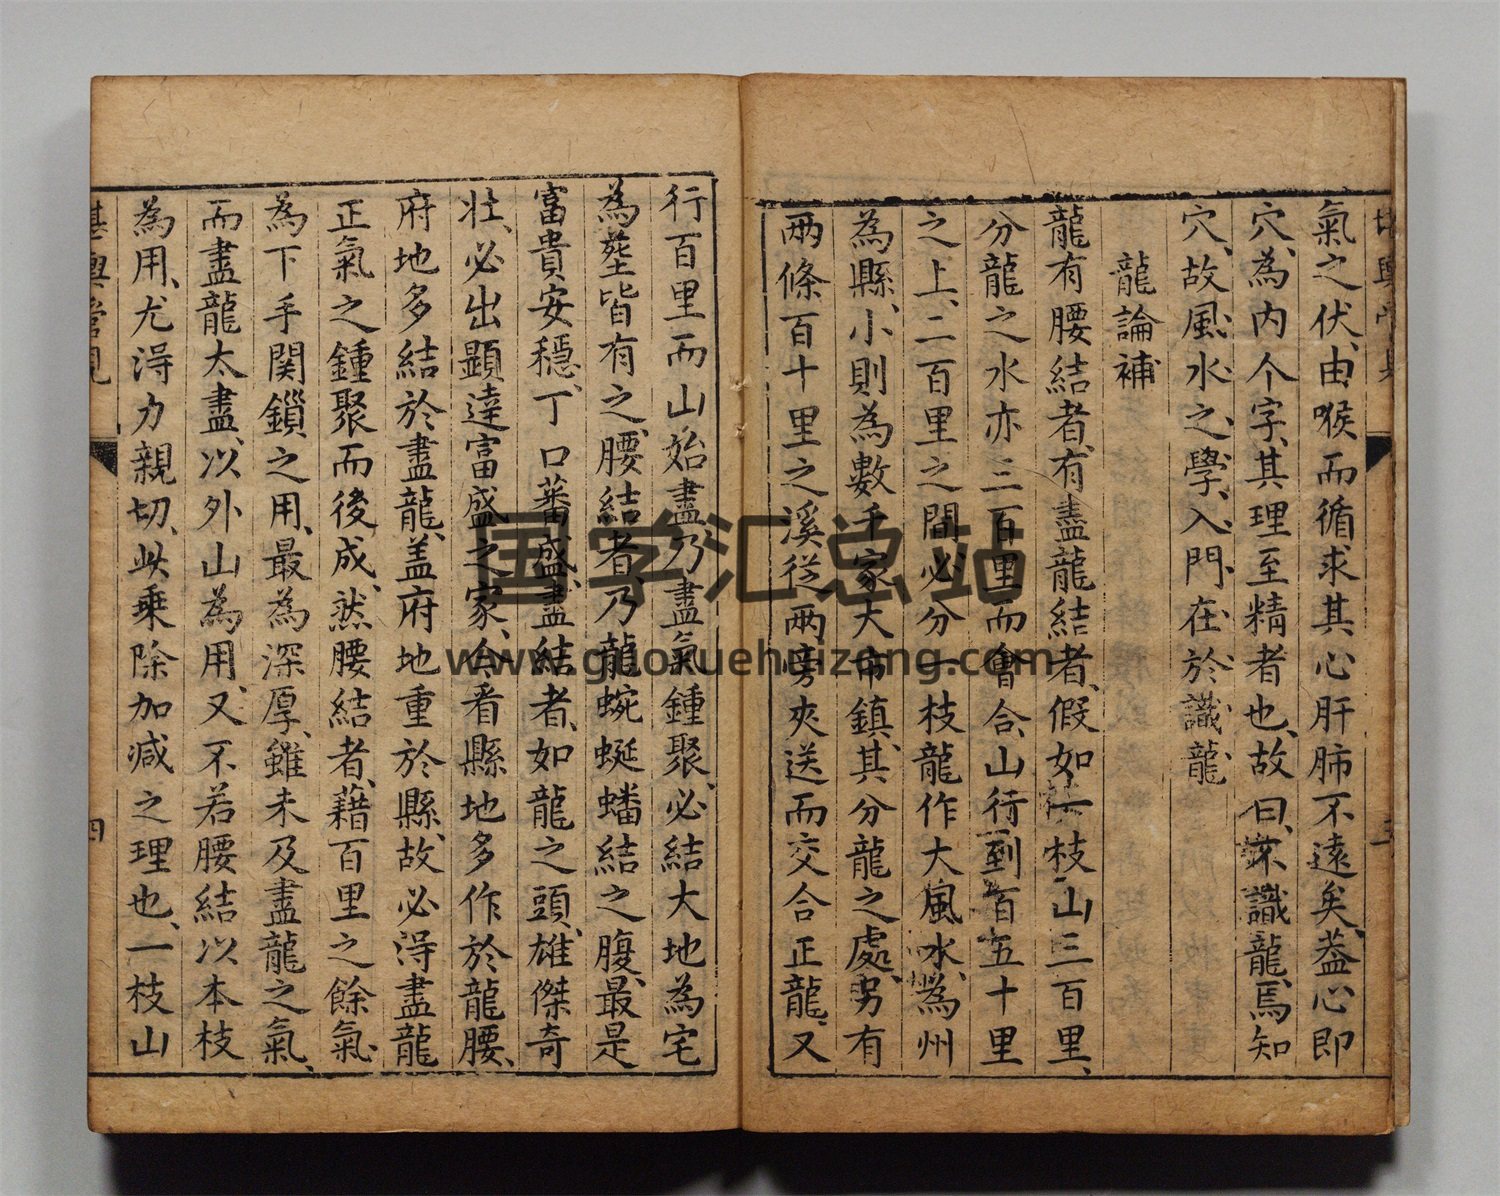 氣之伏、由喉而循求其心肝肺不遠矣、葢心即
穴、為内个字、其理至精者也、故曰、不識龍、焉知
穴、故風水之學、入門、在於識龍
龍論補
龍有腰結者、有盡龍結者、假如一枝山三百里、
分龍之水亦三百里而會合、山行到百五十里
之上、二百里之間必分一枝龍作大風水、為州
為縣、小則為數千家大市鎮、其分龍之處、另有
兩條百十里之溪從兩旁夾送而交合正龍、又
行百里而山始盡、乃盡氣鍾聚、必結大地為宅
為塟皆有之、腰結者、乃龍蜿蜒蟠結之腹、最是
富貴安穩、丁口蕃盛、盡結者、如龍之頭、雄傑奇
壮、必出顯達富盛之家、今看縣地多作於龍腰、
府地多結於盡龍、盖府地重於縣、故必淂盡龍
正氣之鍾聚而後成、然腰結者、藉百里之餘氣
為下手関鎖之用、最為深厚、雖未及盡龍之氣、
而盡龍太盡、以外山為用、又不若腰結以本枝
為用、尤淂力親切、此乘除加减之理也、一枝山
堪輿管見
四
国学汇总站
www.guoxuehuizong.com